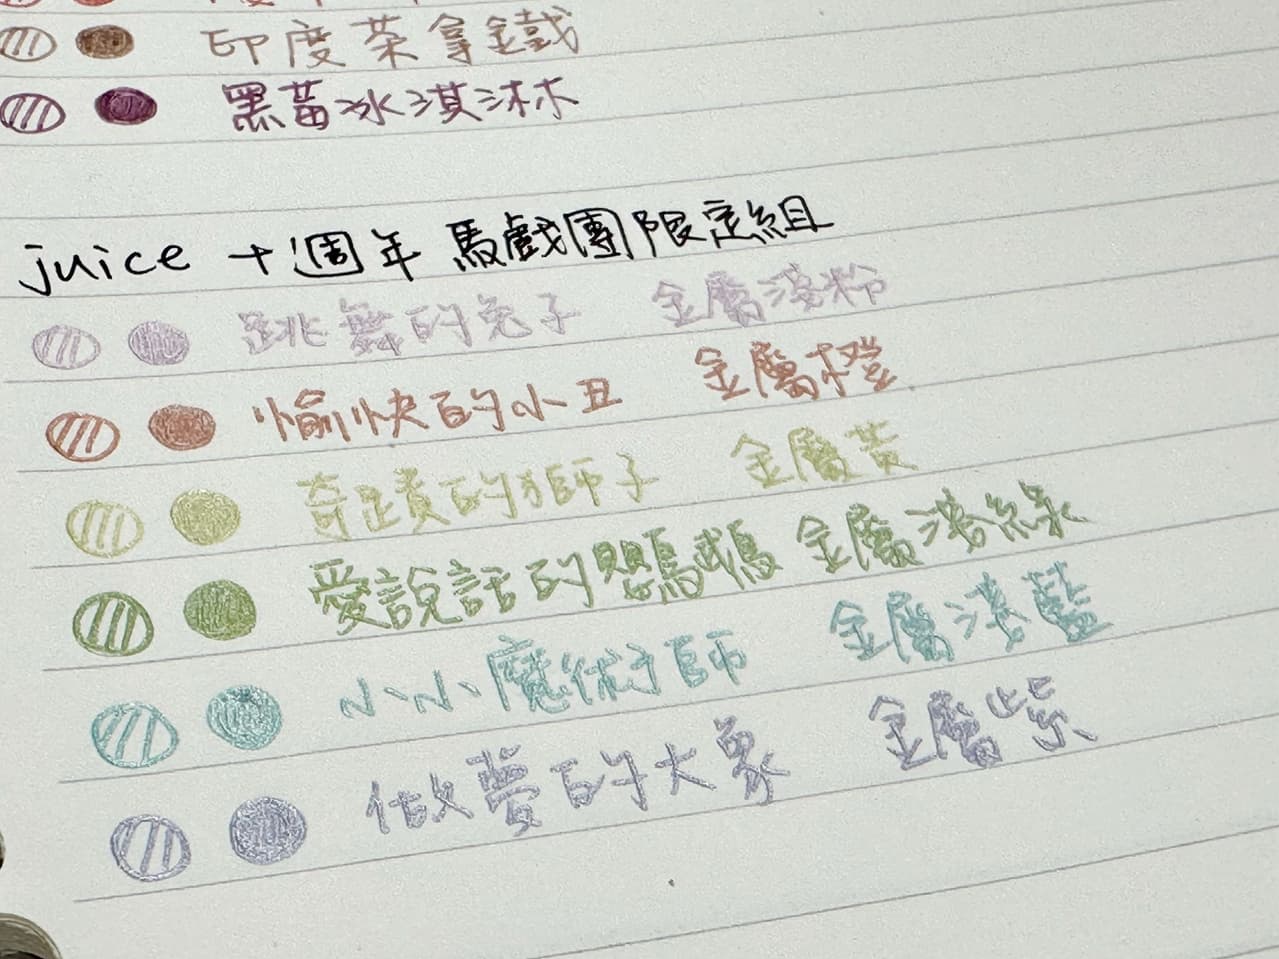 印度茶拿鐵
黑莓冰淇淋
juice 十週年 馬戲團限定組
跳舞的兔子 金屬淺粉
愉快的小丑 金屬橙
奇蹟的獅子 金屬黃
愛說話的鸚鵡 金屬淺綠
小小魔術師 金屬淺藍
做夢的大象 金屬紫